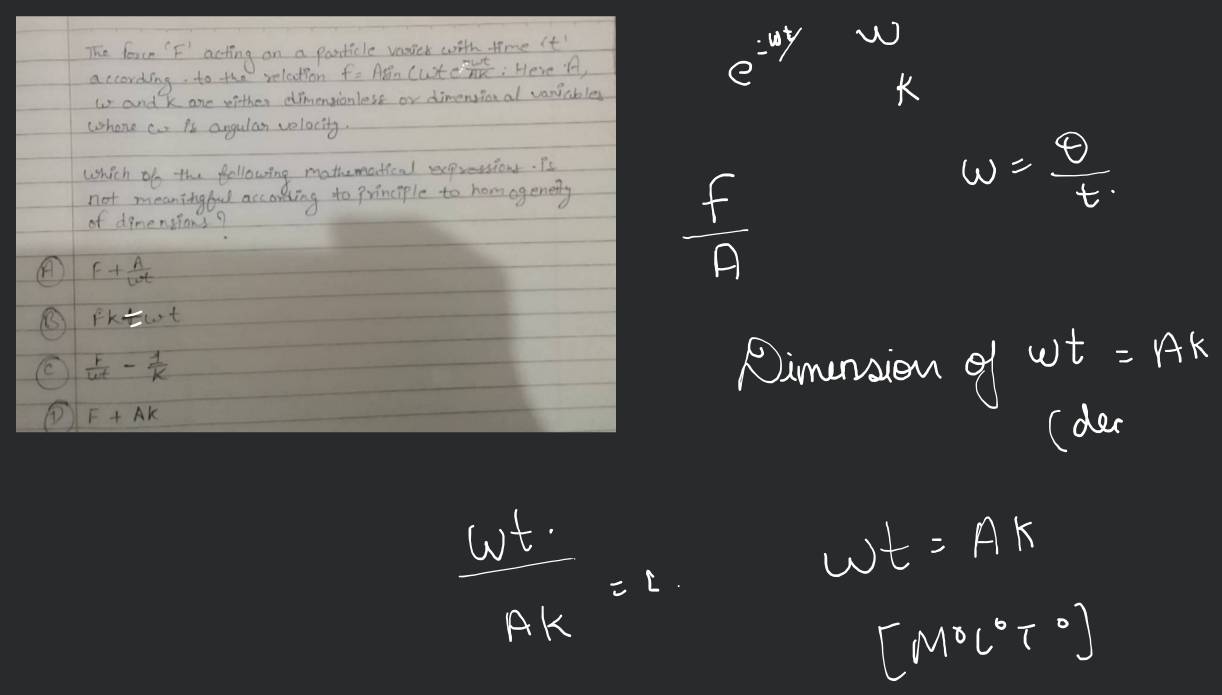 The force 'F' acting on a particle varies with time 't'
according to the relation f = A sin (wt e^-wt/AK. Here A,
w and k are either dimensionless or dimensional variables
where w is angular velocity.
which of the following mathematical expressions is
not meaningful according to principle to homogeneity
of dimensions?
(A) F + A/wt
(B) FK = wt
(C) F/wt - 1/K
(D) F + AK
e^-wt/ w
K
w = θ/t.
f/A
Dimension of wt = AK
(der
wt./AK = 1.
wt = AK
[M⁰L⁰T⁰]